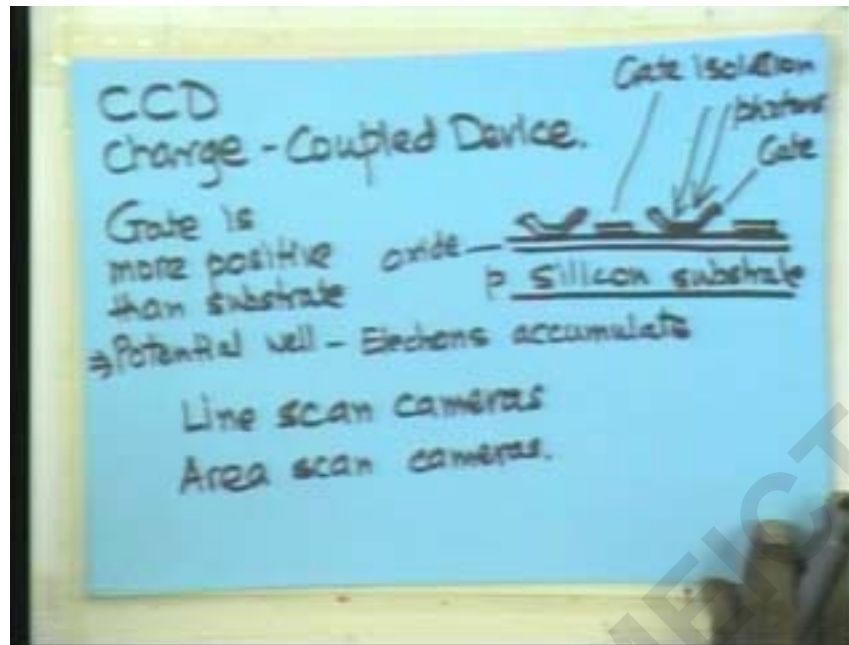 CCD
Charge - Coupled Device.
Gate isolation
photons
Gate
Gate is
more positive
than substrate
oxide
p silicon substrate
⇒ Potential well - Electrons accumulate
Line scan cameras
Area scan cameras.
MEICT